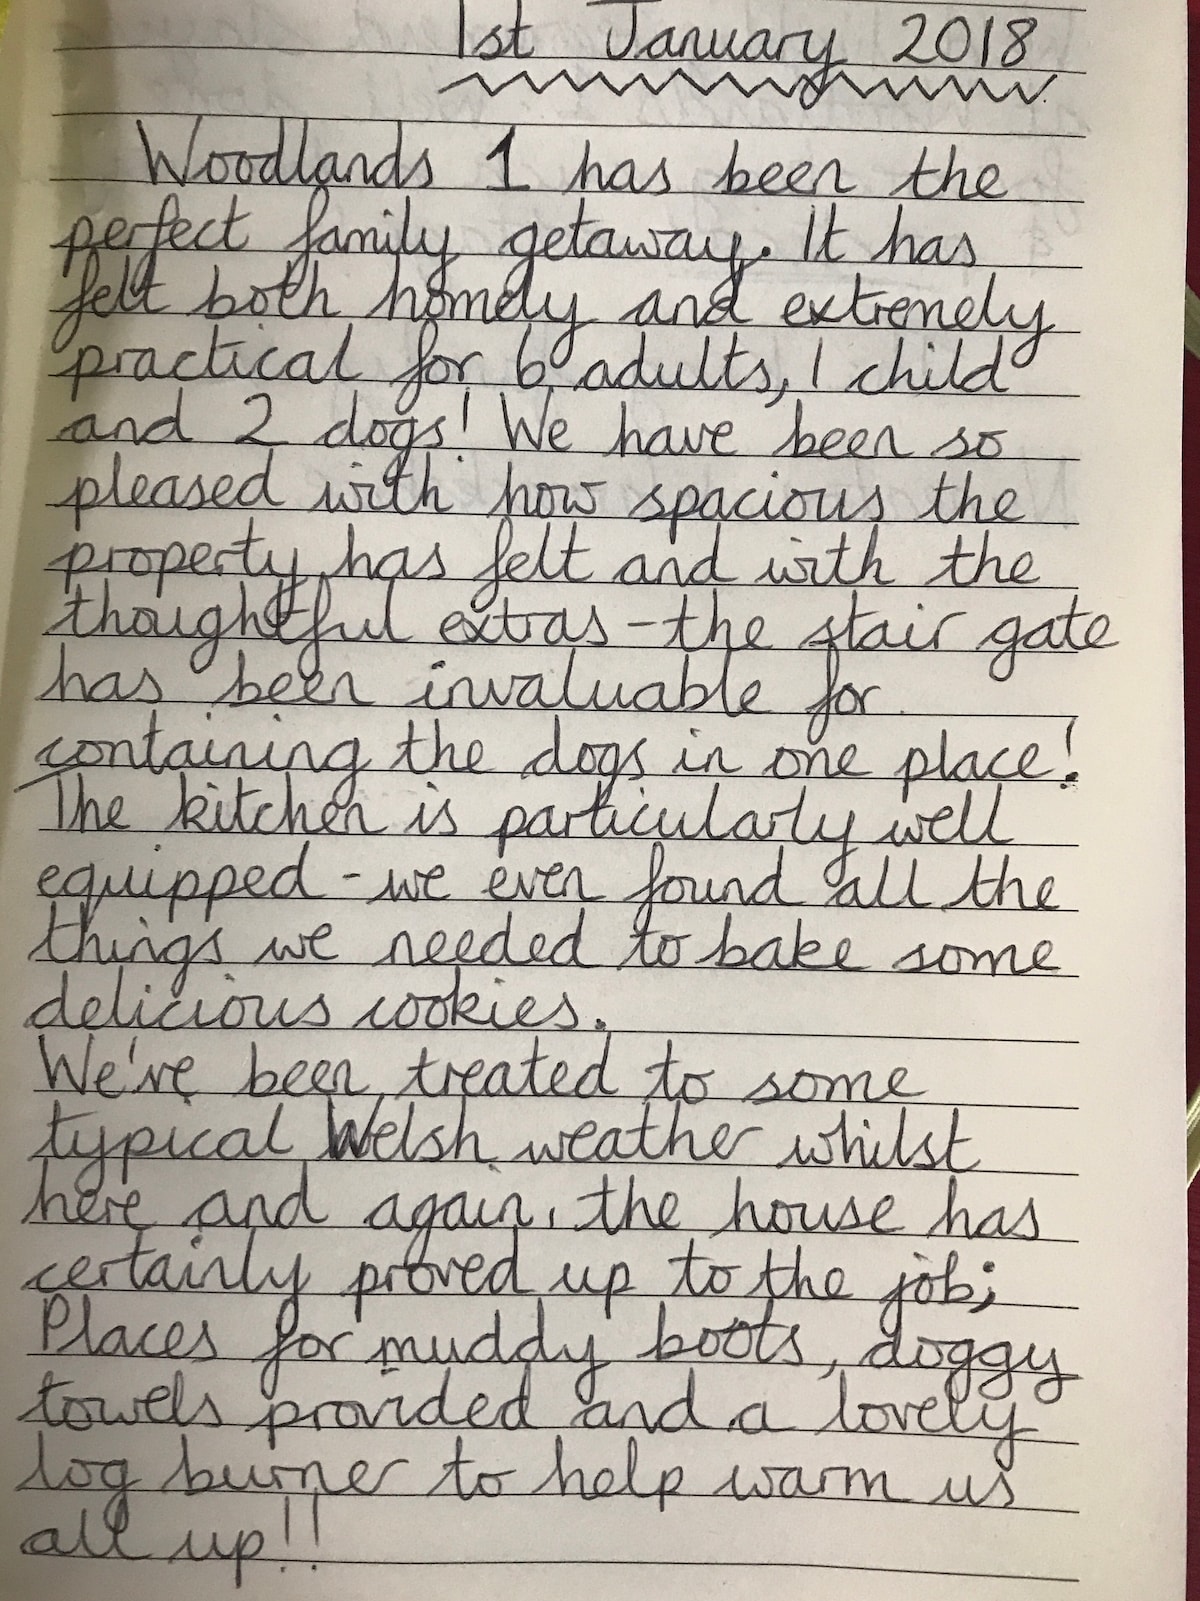 1st January 2018
Woodlands 1 has been the
perfect family getaway. It has
felt both homely and extremely
practical for 6 adults, 1 child
and 2 dogs! We have been so
pleased with how spacious the
property has felt and with the
thoughtful extras - the stair gate
has been invaluable for
containing the dogs in one place!
The kitchen is particularly well
equipped - we even found all the
things we needed to bake some
delicious cookies.
We've been treated to some
typical Welsh weather whilst
here and again, the house has
certainly proved up to the job;
Places for muddy boots, doggy
towels provided and a lovely
log burner to help warm us
all up!!